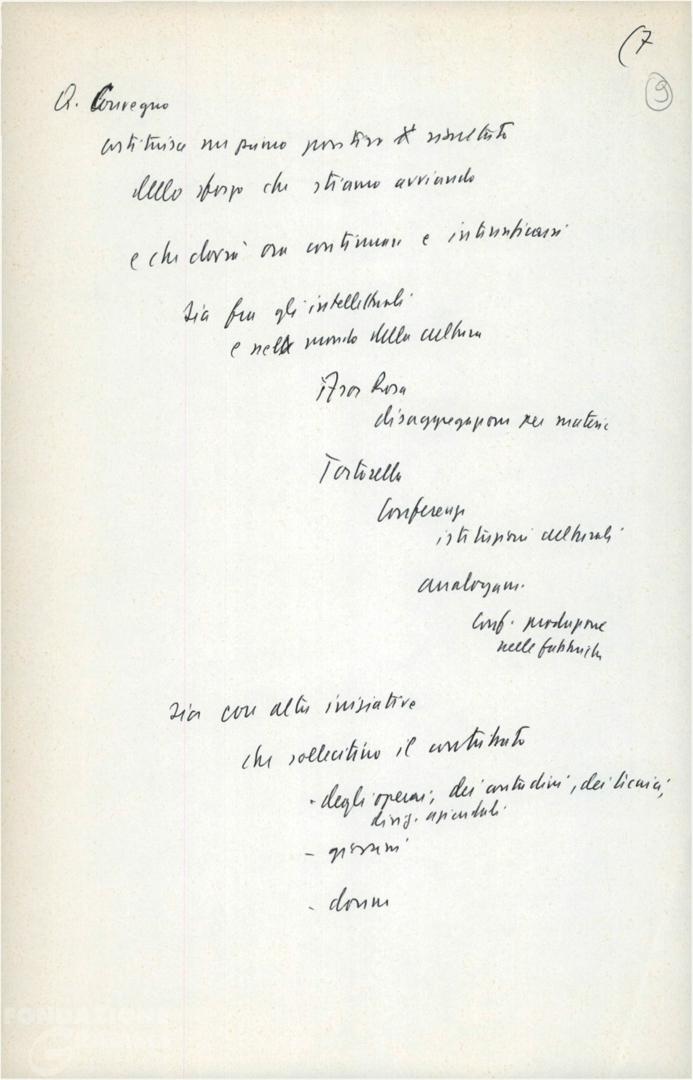 (7
9
Q. Convegno
costituisce un primo positivo risultato
dello sforzo che stiamo avviando
e che dovrà ora continuare e intensificarsi
sia fra gli intellettuali
e nel mondo della cultura
Asor Rosa
disaggregazione per materie
Tortorella
Conferenza
istituzioni culturali
analogam.
Conf. produzione
nelle fabbriche
sia con altre iniziative
che sollecitino il contributo
- degli operai, dei contadini, dei tecnici,
dirig. aziendali
- giovani
- donne
FONDAZIONE